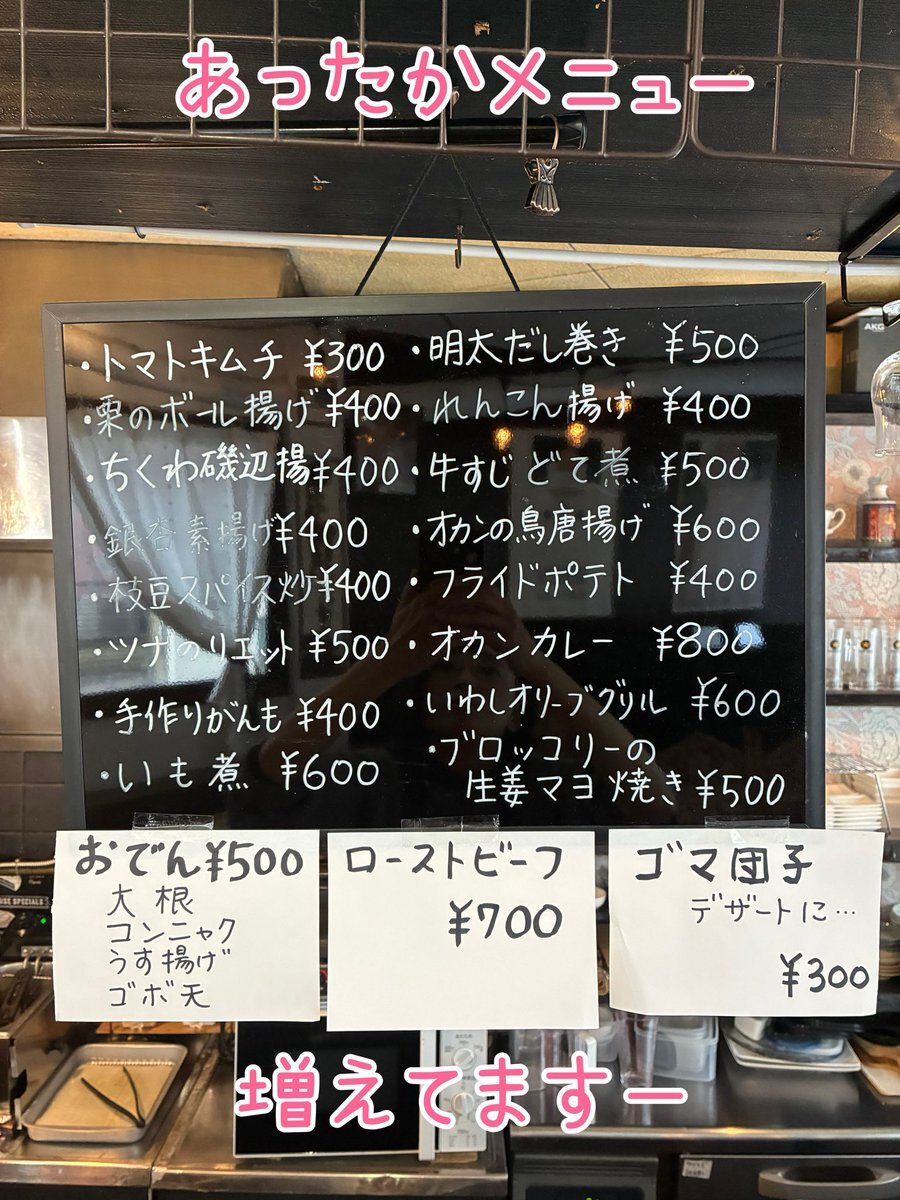 あったかメニュー
・トマトキムチ ¥300
・栗のボール揚げ ¥400
・ちくわ磯辺揚 ¥400
・銀杏素揚げ ¥400
・枝豆スパイス炒 ¥400
・ツナのリエット ¥500
・手作りがんも ¥400
・いも煮 ¥600
・明太だし巻き ¥500
・れんこん揚げ ¥400
・牛すじどて煮 ¥500
・オカンの鳥唐揚げ ¥600
・フライドポテト ¥400
・オカンカレー ¥800
・いわしオリーブグリル ¥600
・ブロッコリーの
生姜マヨ焼き ¥500
おでん ¥500
大根
コンニャク
うす揚げ
ゴボ天
ローストビーフ
¥700
ゴマ団子
デザートに…
¥300
増えてますー